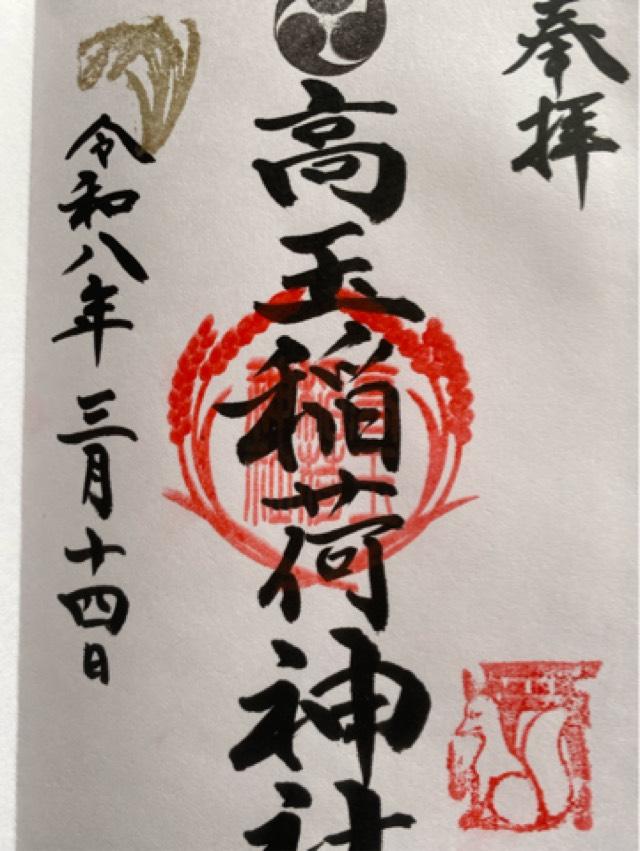 奉拝
高玉稲荷神社
令和八年三月十四日